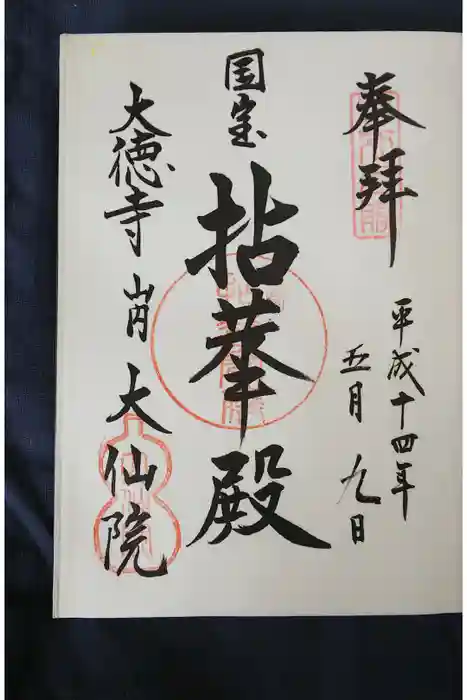 奉拝
平成十四年
五月九日
国宝
拈華殿
大徳寺山内大仙院